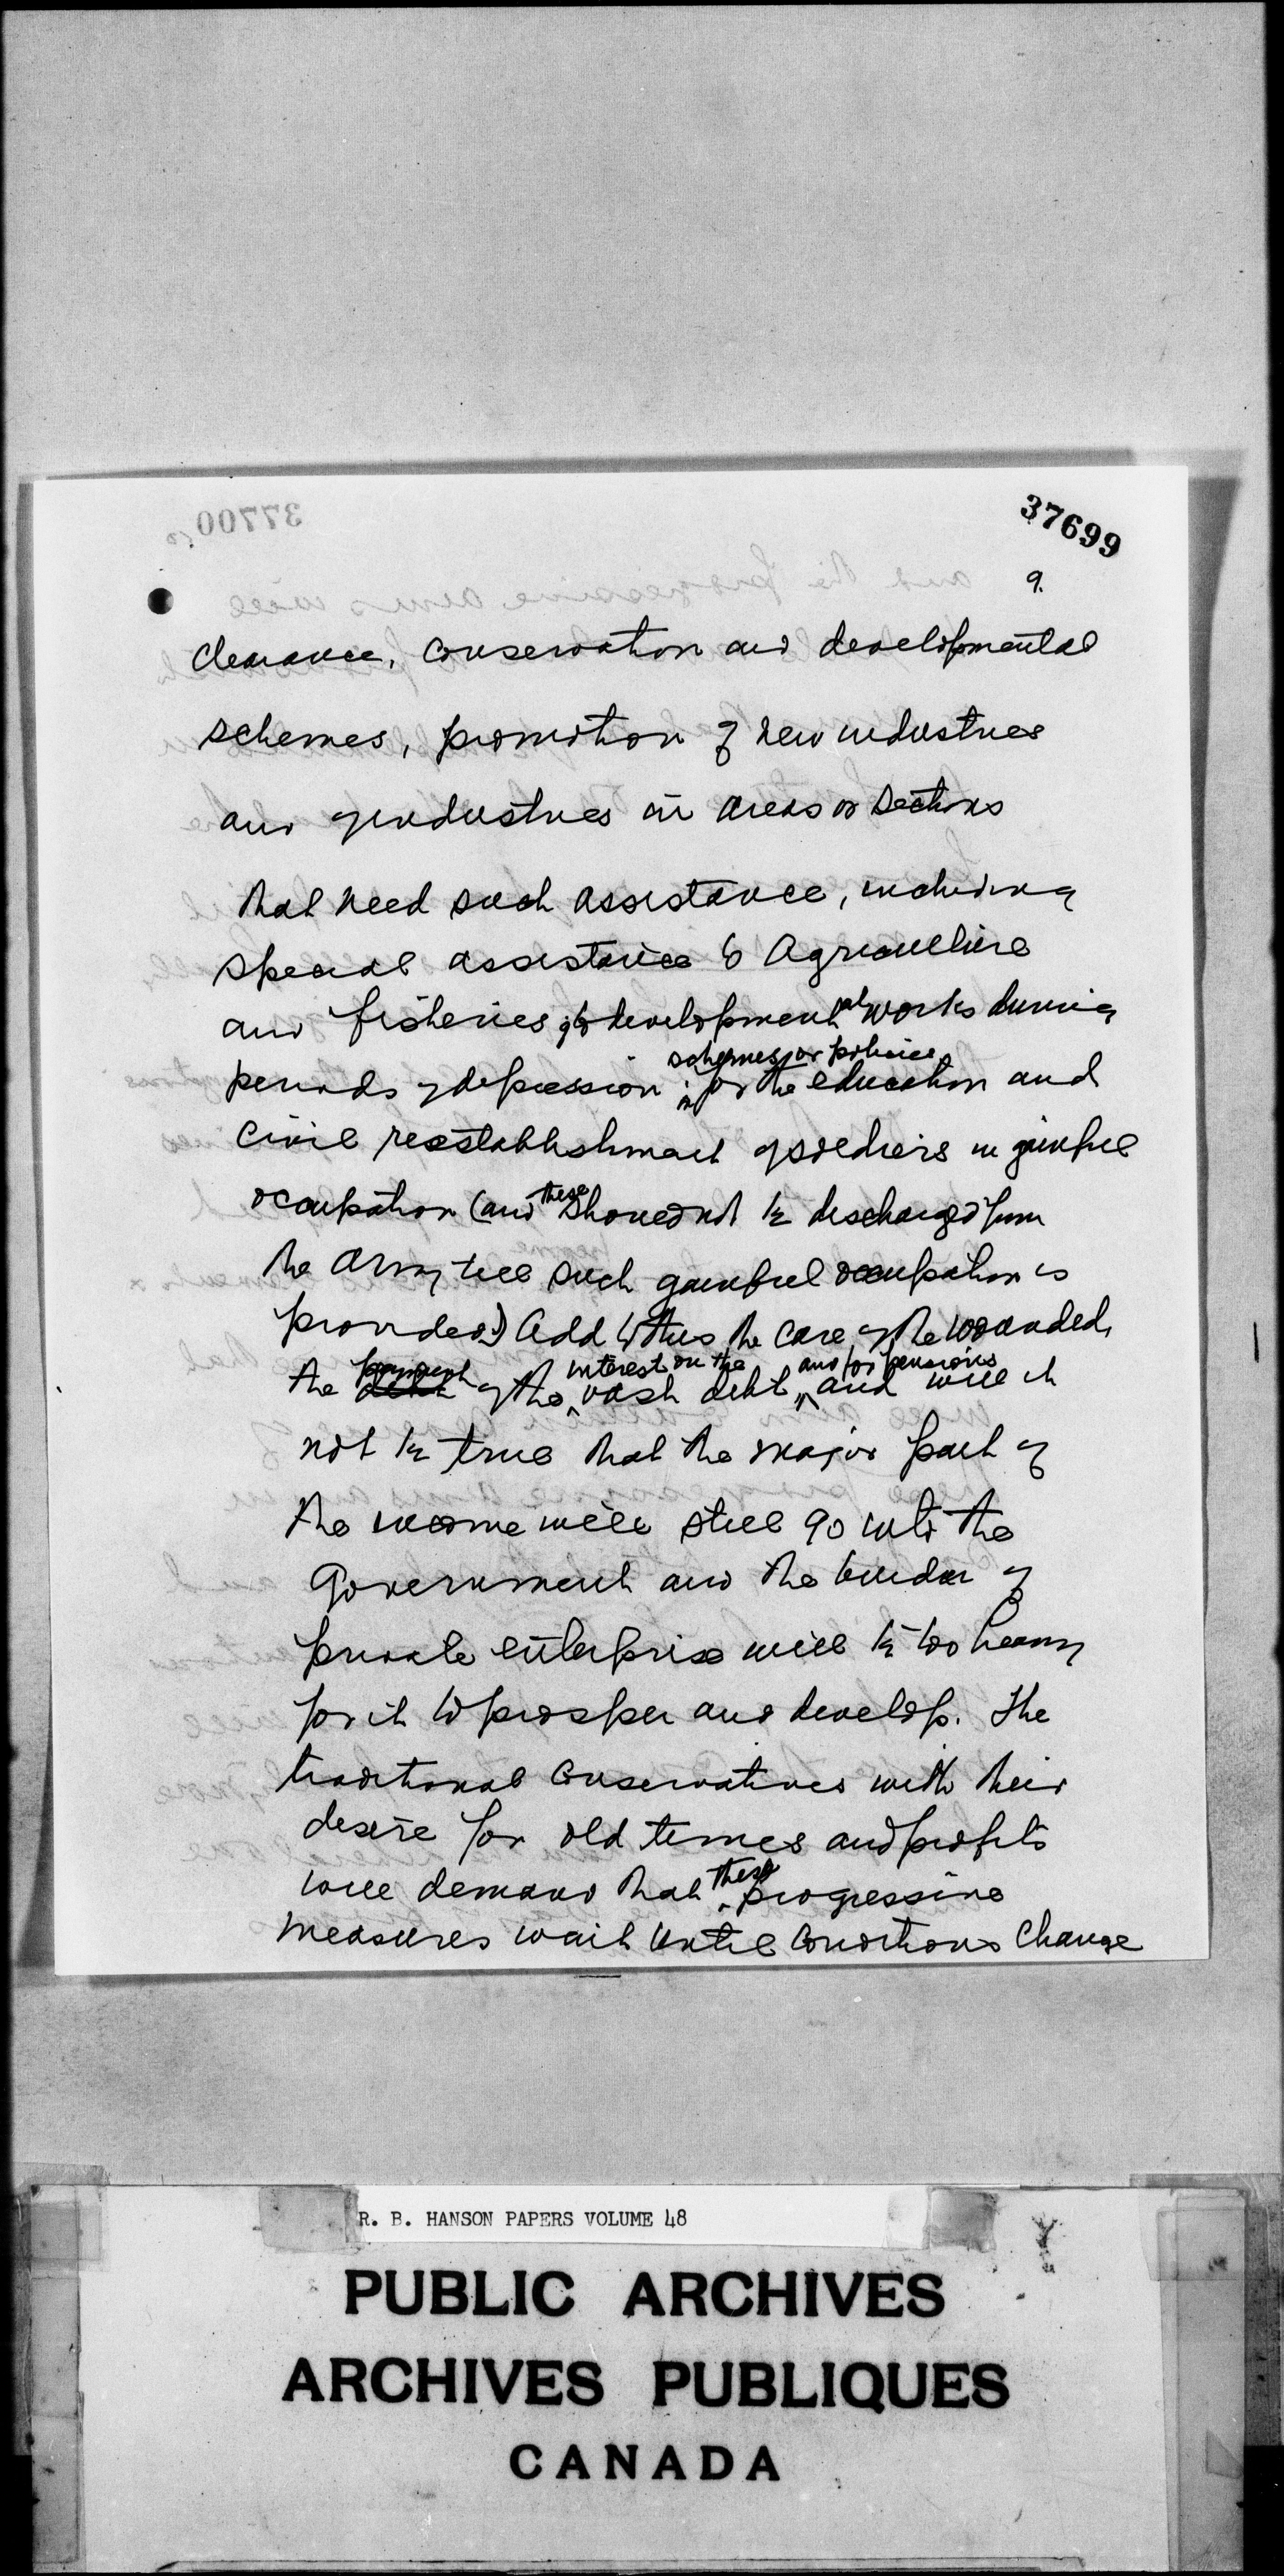 37700
37699
9.
clearance, conservation and developmental
schemes, promotion of new industries
and of industries in areas or sections
that need such assistance, including
special assistance to Agriculture
and fisheries, to developmental works during
periods of depression;
schemes or policies
for the education and
civil reestablishment of soldiers in gainful
occupation (and these should not be discharged from
the Army till such gainful occupation is
provided.) Add to this the care of the wounded,
the payment of the interest on the vast debt, and for pensions and will it
not be true that the major part of
the income will still go into the
Government and the burden of
private enterprise will be too heavy
for it to prosper and develop. The
traditional Conservatives with their
desire for old times and profits
will demand that these progressive
measures wait until conditions change
R. B. HANSON PAPERS VOLUME 48
PUBLIC ARCHIVES
ARCHIVES PUBLIQUES
CANADA